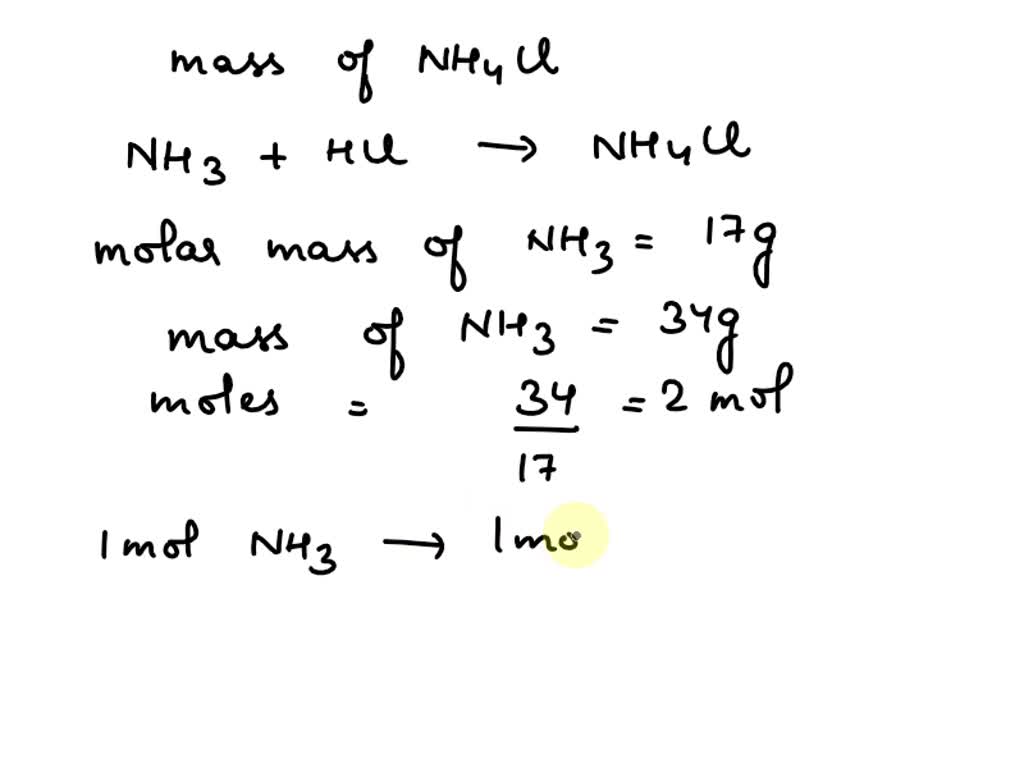 mass of NH4Cl
NH3 + HCl → NH4Cl
molar mass of NH3 = 17g
mass of NH3 = 34g
moles = 34/17 = 2 mol
1 mol NH3 → 1 mo